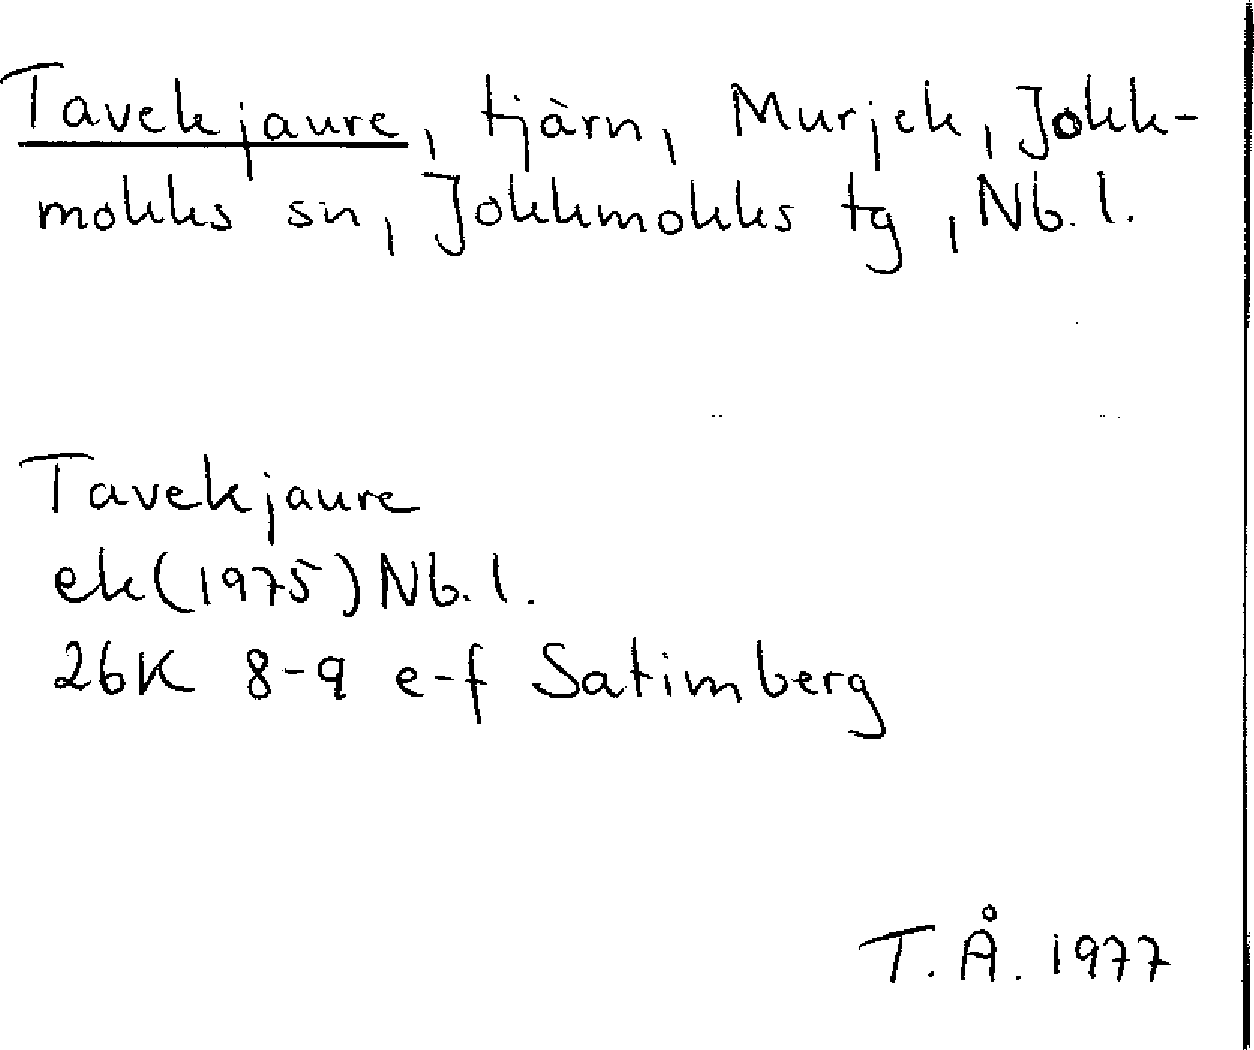 Tavekjaure, tjärn, Murjek, Jokk-
mokks sn, Jokkmokks tg, Nb.l.
Tavekjaure
ek(1975)Nb.l.
26K 8-9 e-f Satimberg
T.Å. 1977